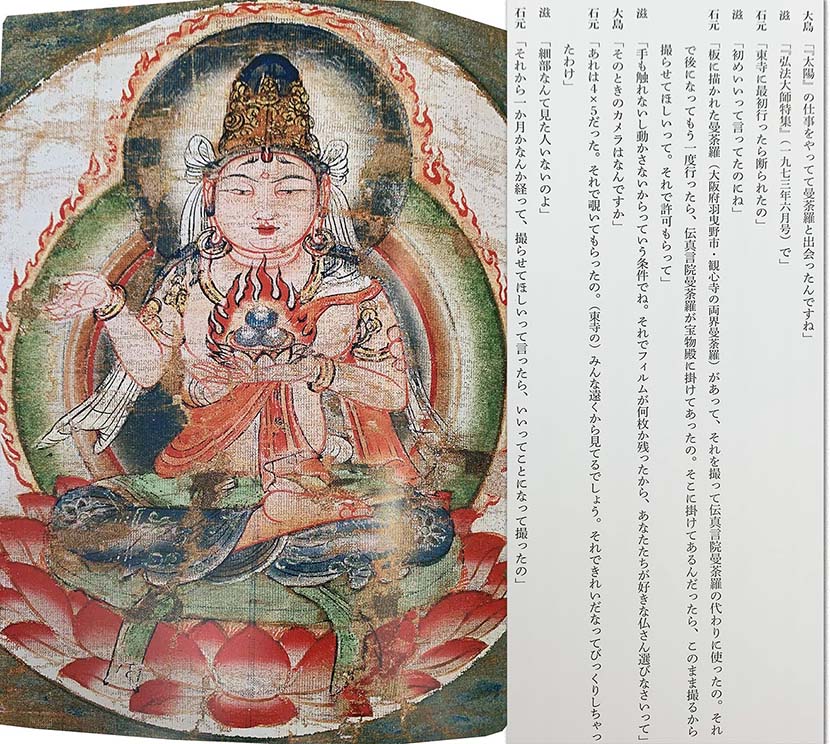 大島　「『太陽』の仕事をやってて曼荼羅と出会ったんですね」
滋　「『弘法大師特集』（一九七三年六月号）で」
石元　「東寺に最初行ったら断られたの」
滋　「初めいいって言ってたのにね」
石元　「板に描かれた曼荼羅（大阪府羽曳野市　観心寺の両界曼荼羅）があって、それを撮って伝真言院曼荼羅の代わりに使ったの。それ
で後になってもう一度行ったら、伝真言院曼荼羅が宝物殿に掛けてあったの。そこに掛けてあるんだったら、このまま撮るから
撮らせてほしいって。それで許可もらって」
滋　「手も触れないし動かさないからっていう条件でね。それでフィルムが何枚か残ったから、あなたたちが好きな仏さん選びなさいって」
大島　「そのときのカメラはなんですか」
石元　「あれは４×５だった。それで覗いてもらったの。（東寺の）みんな遠くから見てるでしょう。それできれいだなってびっくりしちゃっ
たわけ」
滋　「細部なんて見た人いないのよ」
石元　「それから一か月かなんか経って、撮らせてほしいって言ったら、いいってことになって撮ったの」